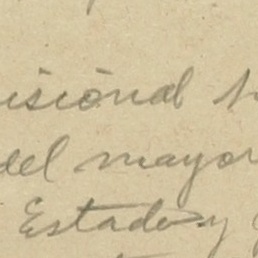 isional
del mayor
Estado y